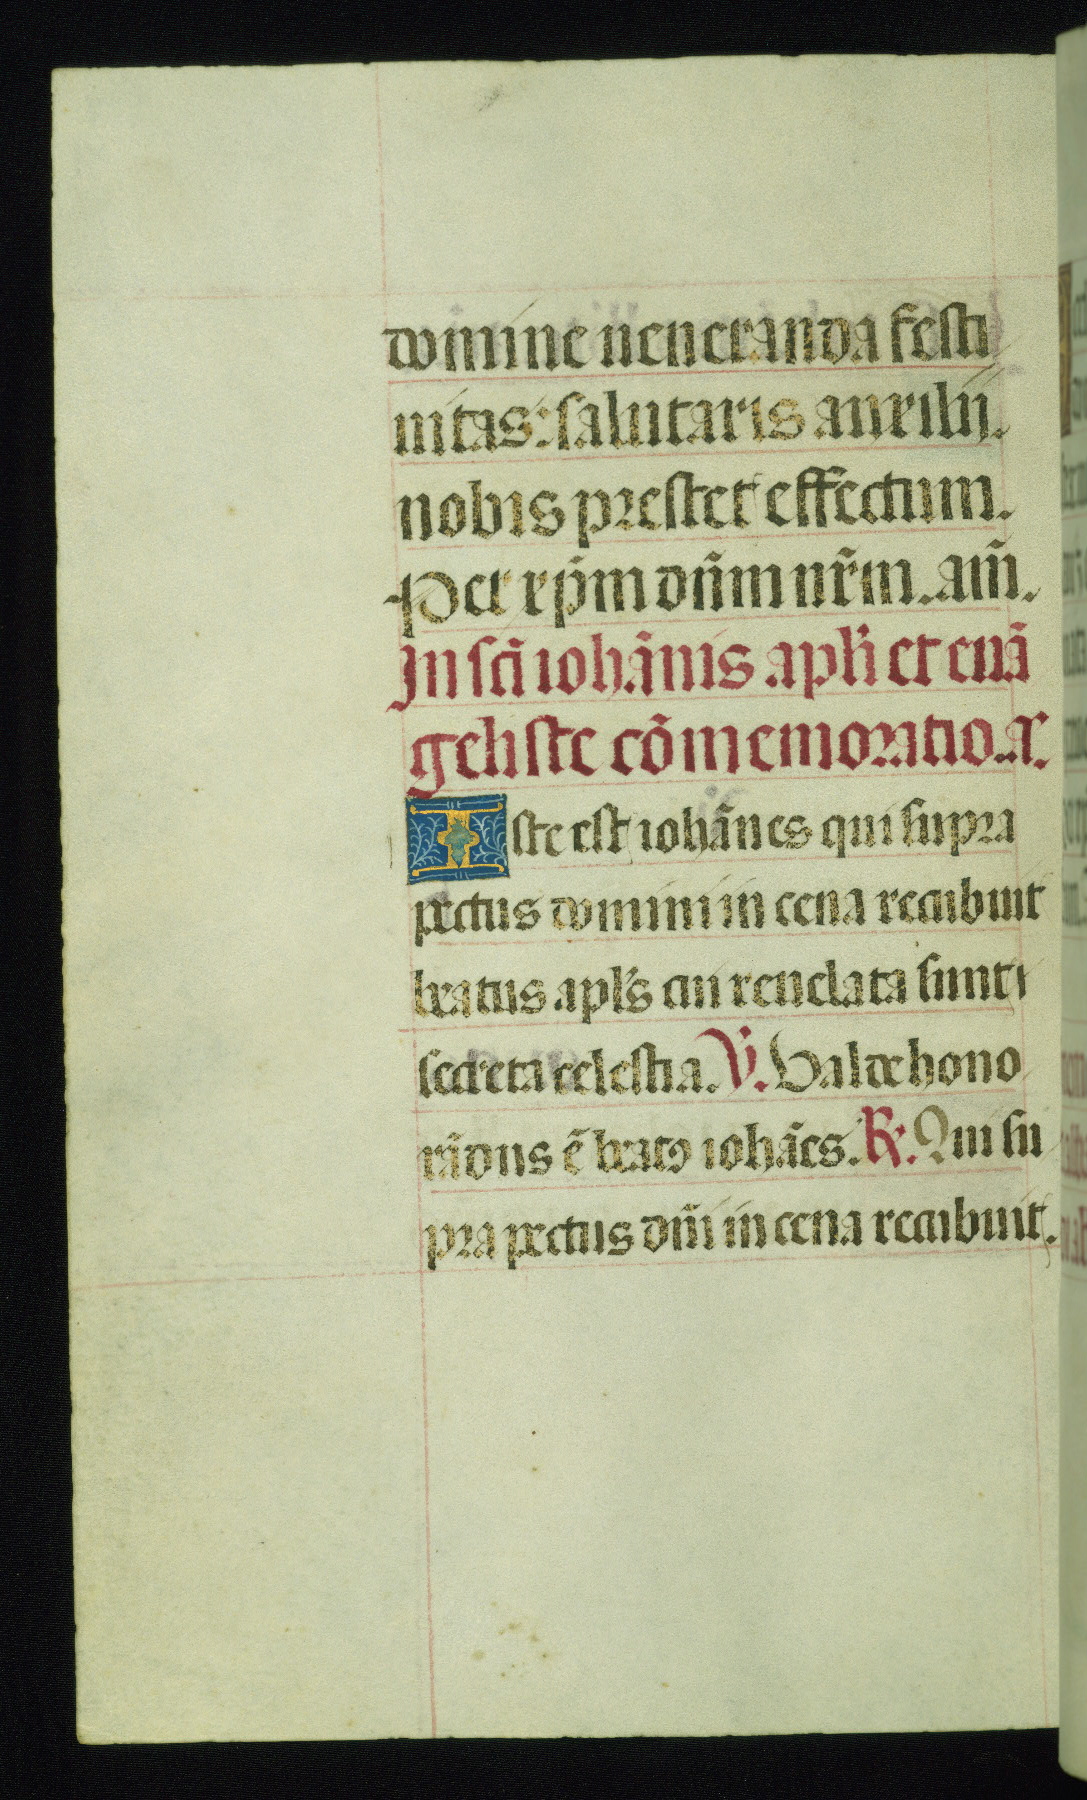 domine ueneranda festi
uitas: salutaris auxilij.
nobis prestet effectum.
Per xp̄m dn̄m nr̄m. am̄.
In sct̄i iohānis apl̄i et euā
geliste cōmemoratio. ar.
Iste est iohānes qui supra
pectus domini in cena recubuit
beatus apl̄s cui reuelata sunt
secreta celestia. V̄. Valde hono
rādus ē beatꝯ iohāes. R. Qui su
pra pectus dn̄i in cena recubuit.